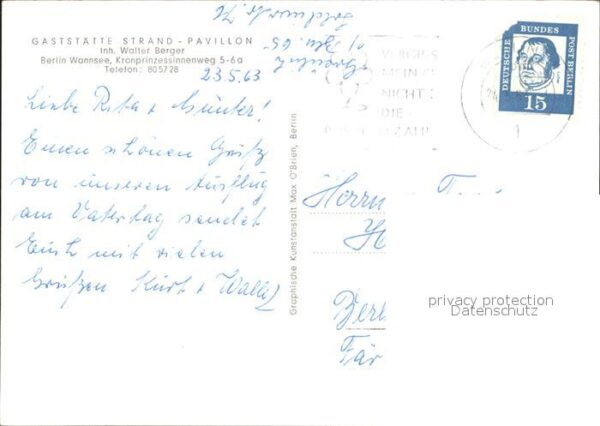 GASTSTÄTTE STRAND - PAVILLON
Inh. Walter Berger
Berlin Wannsee, Kronprinzessinnenweg 5-6a
Telefon: 805728
23.5.63
Liebe Rita + Günter!
Einen schönen Gruß
von unserem Ausflug
am Vatertag sendet
Euch mit vielen
Grüßen Kurt + Wally
Graphische Kunstanstalt Max O'Brien, Berlin
VERGISS
MEIN
NICHT
DIE
DEUTSCHE BUNDES POST BERLIN
15
Herrn T...
H
Berl
Fär
privacy protection
Datenschutz